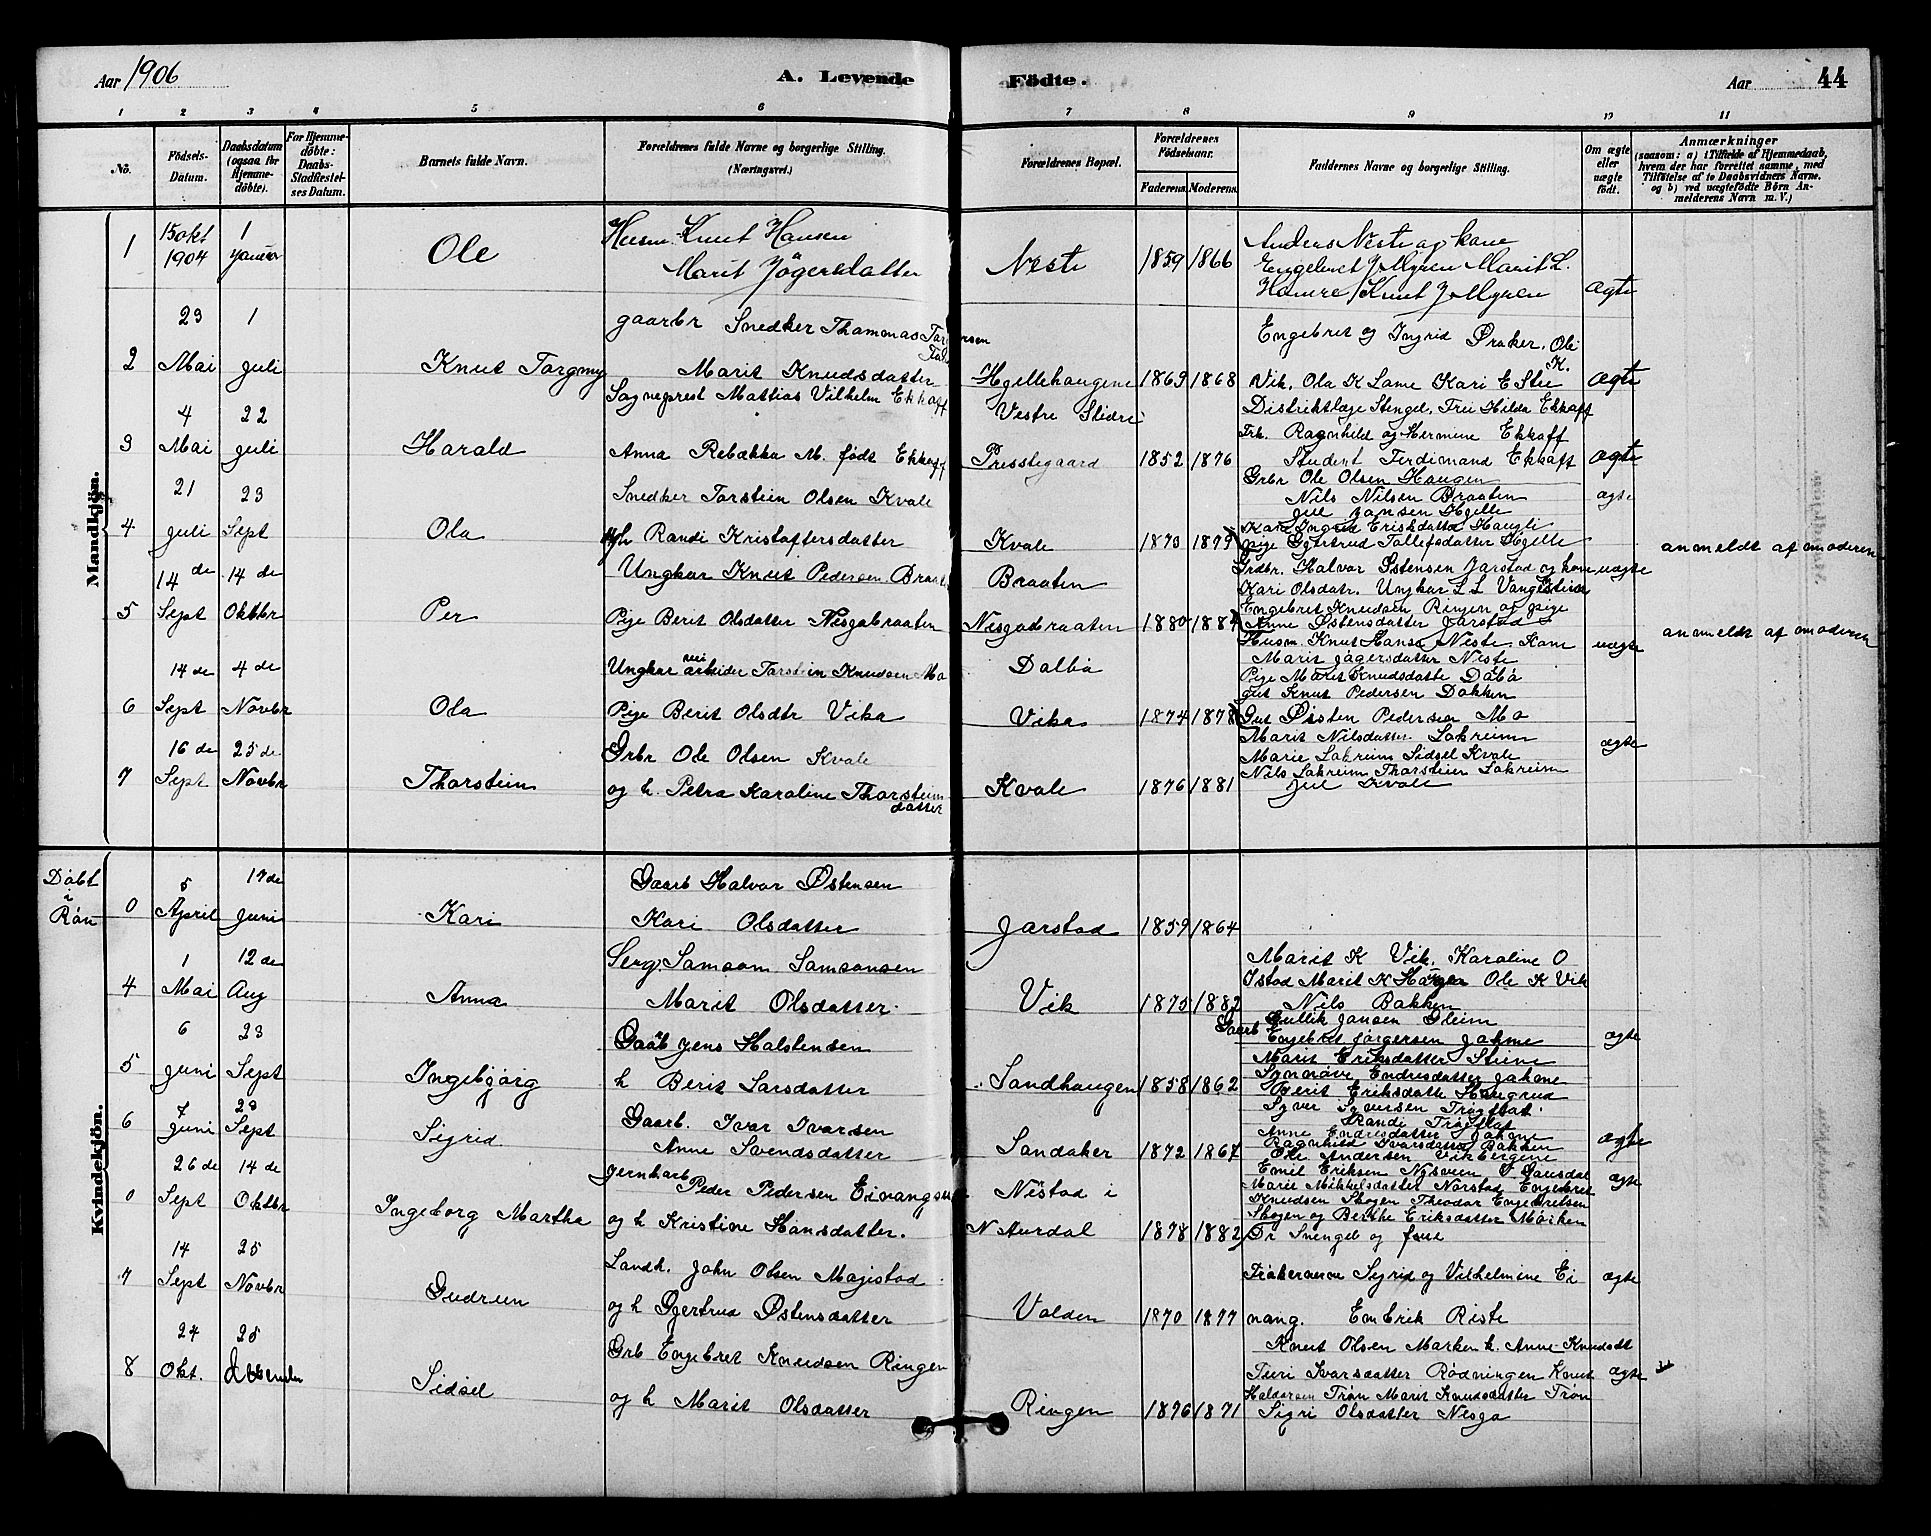 Aar 1906
A. Levende Födte.
Aar 44
1 2 3 4 5 6 7 8 9 10 11
No.
Födsels-Datum.
Daabsdatum (ogsaa for Hjemme-döbte).
For Hjemme-döbte: Daabs-Stadfæstel-ses Datum.
Barnets fulde Navn.
Forældrenes fulde Navne og borgerlige Stilling.
(Næringsvei.)
Forældrenes Bopæl.
Forældrenes Födselsaar.
Faderens. Moderens.
Faddernes Navne og borgerlige Stilling.
Om ægte eller uægte födt.
Anmærkninger
(saasom: a) i Tilfælde af Hjemmedaab, hvem der har forrettet samme, med Tilföielse af to Daabsvidners Navne. og b) ved uægtefödte Börn Anmelderens Navn m. V.)
Mandkjön.
1 15 okt 1904 1 Januar Ole
Husm. Knut Hansen
Marit Jøgersdatter
Neste 1859 1866
Anders Neste og kone
Engebret J Myren Marit L.
Hamre / Knut J Myren ægte
2 23 Mai 1 Juli Knut Torgny
gaarbr Snedker Thammas
Marit Knudsdatter
Hjellehaugene 1863 1868
Engebret og Ingrid Braker, Ole K.
Vik. Ola K Lome Kari E Stee ægte
3 4 Mai 22 Juli Harald
Sogneprest Mattias Vilhelm Ekhoff
Anna Rebækka M. født Ekhoff
Vestre Slidre
Presstegaard 1852 1876
Distriktlæge Stengel, Fru Hilda Ekhoff
Frk. Ragnhild og Hermine Ekhoff
Student Ferdinand Ekhoff ægte
4 21 Juli 23 Sept Ola
Snedker Torstein Olsen Kvale
og h Randi Kristoffersdatter
Kvale 1873 1879
Grbr Ole Olsen Haugen
Nils Nilsen Braaten
Jul Jansen Hjelle
Kari Ingrid Eriksdatter Haugli
pige Gjertrud Tollefsdatter Hjelle ægte
anmeldt af moderen
5 14 de Sept 14 de Oktbr Per
Ungkar Knut Pedersen
Pige Berit Olsdatter Nesgabraaten
Braaten
Nesgabraaten 1880 1884
Grdbr. Halvor Østensen Jarstad og kone
Kari Olsdatr. Ungkar L L Vangestine
Engebret Knudsen Ringen og pige
Anne Østensdatter Jarstad uægte
anmeldt af moderen
6 14 de Sept 4 de Novbr Ola
Ungkar arbeider Torstein Knudsen Mo
Pige Berit Olsdtr Vika
Dalbø
Vika 1874 1878
Husm. Knut Hansen Neste Kone
Marit Jøgersdatter Neste
Pige Marit Knudsdatte Dalbø
Gut Knut Pedersen Dokken
Gut Østen Pedersen Mo uægte
7 16 de Sept 25 de Novbr Thorstein
Grbr Ole Olsen Kvale
og h. Petra Karoline Thorsteinsdatter
Kvale 1876 1881
Marit Nilsdatter Løkreim
Marie Løkreim Sidsel Kvale
Nils Løkreim Thorstein Løkreim
Jul Kvale ægte
Kvindekjön.
Døbt i Røn
0 5 April 17 de Juni Kari
Gaarb Halvor Østensen
Kari Olsdatter
Jarstad 1859 1864
4 1 Mai 12 de Aug Anna
Serg. Samsom Samsonsen
Marit Olsdatter
Vik 1875 1882
Marit K Vik, Karoline O
Istad Marit K Hauga Ole K Vik
Nils Bakken
5 6 Juni 23 Sept Ingebjørg
Gaarb Jens Halstensen
h Berit Larsdatter
Sandhaugen 1858 1862
Gullik Jansen Gleim
Gaarb Engebret Jørgersen Jahme
Marit Eriksdatter Stiine
Synnøve Endresdatter Jahme
Berit Eriksdatte Haugrud ægte
6 7 Juni 23 Sept Sigrid
Gaarb. Ivar Ivarsen
Anne Svendsdatter
Sandaker 1872 1867
Syver Syversen Trøgflat
Randi Trøgflat
Anne Endresdatter Jahme
Ragnhild Ivarsdatter Bakken
Ole Andersen Vikbergene ægte
0 26 de Sept 14 de Oktbr Ingeborg Martha
Jernharb
Peder Pedersen
og h Kristine Hansdatter.
Nestad i
N Aurdal 1878 1882
Emil Eriksen Nysveen Ø Gausdal
Marie Mikkelsdatter Norstad Engebret
Knudsen Skogen Theodor Engebretsen
Skogen og Berthe Eriksdatter Moiken ægte
7 14 Sept 25 Novbr Gudrun
Landh. John Olsen Majistad
og h Gjertrud Østensdatter
Volden 1870 1877
Dr Snengel og frue
Frøkernene Sigrid og Vilhelmine Ei
nang. Embrik Riste ægte
8 24 Okt. 25 Sidsel
Grb Engebret Knudsen Ringen
og h Marit Olsdatter
Ringen 1896 1871
Knut Olsen Marken h. Anne Knudsdt
Turi Ivarsdatter Rødningen Knut
Haldorsen Trøn Marit Knudsdatter Trøn
Sigri Olsdatter Nesga ægte